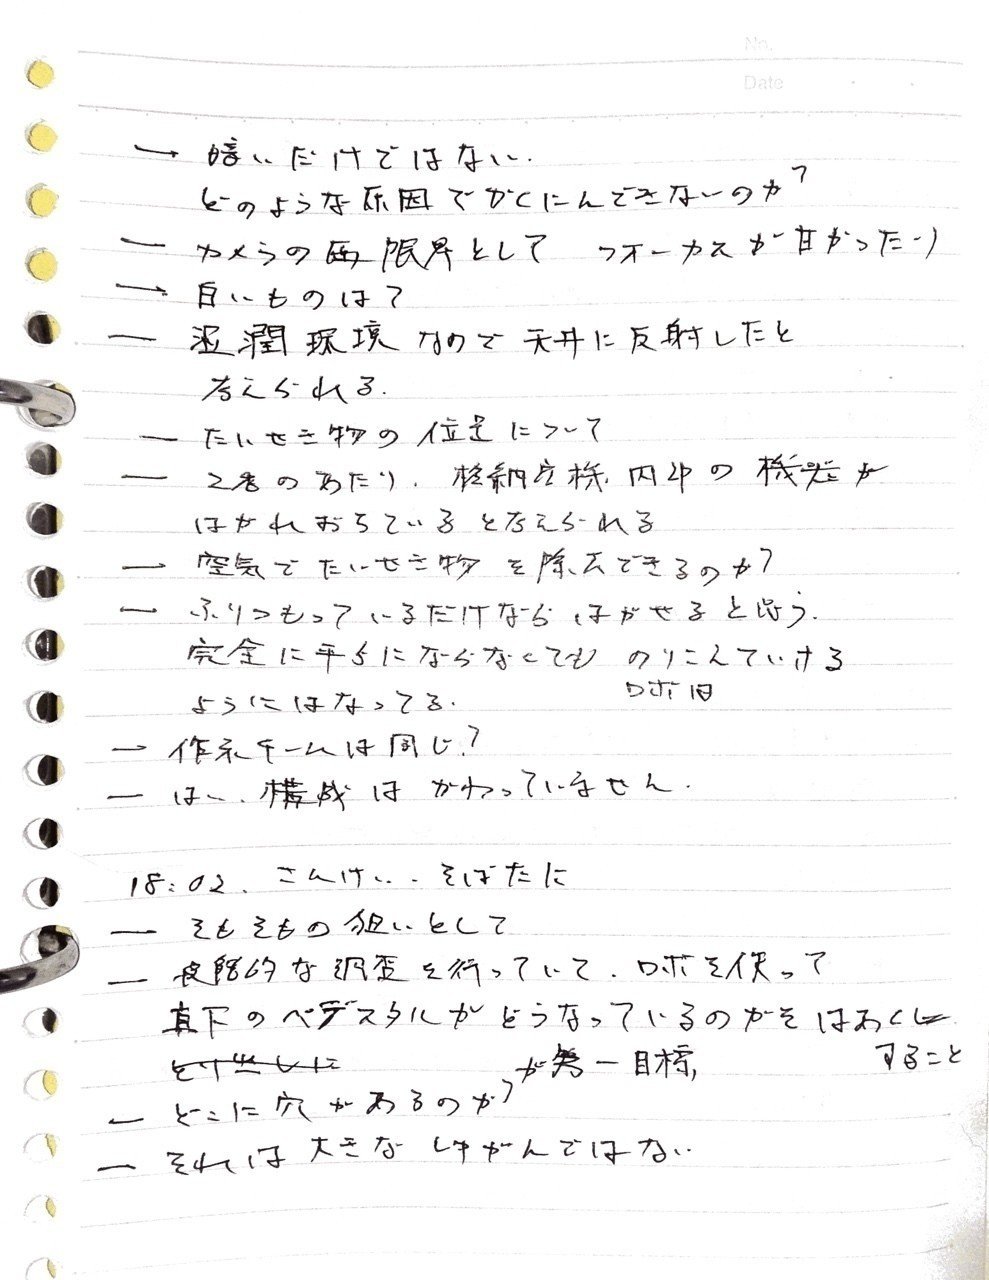 No.
Date
→ 暗いだけではない.
どのような原因でかくにんできないのか?
― カメラの画 限界として フォーカスが甘かったり
→ 白いものは?
― 湿潤環境なので天井に反射したと
考えられる.
― たいせき物の位置について
― 2番のあたり. 格納容機 内部の機器が
はがれおちていると考えられる
― 空気でたいせき物を除去できるのか?
― ふりつもっているだけならはがせると思う.
完全に平らにならなくても のりこんでいける
ロボ自
ようにはなってる.
→ 作業チームは同じ?
― はい. 構成はかわっていません.
18:02. さんけい. そばたに
― そもそもの狙いとして
― 段階的な調査を行っていて. ロボを使って
真下のペデスタルがどうなっているのかをはあくし
すること
が第一目標,
― どこに穴があるのか?
― それは大きな しゅがんではない.